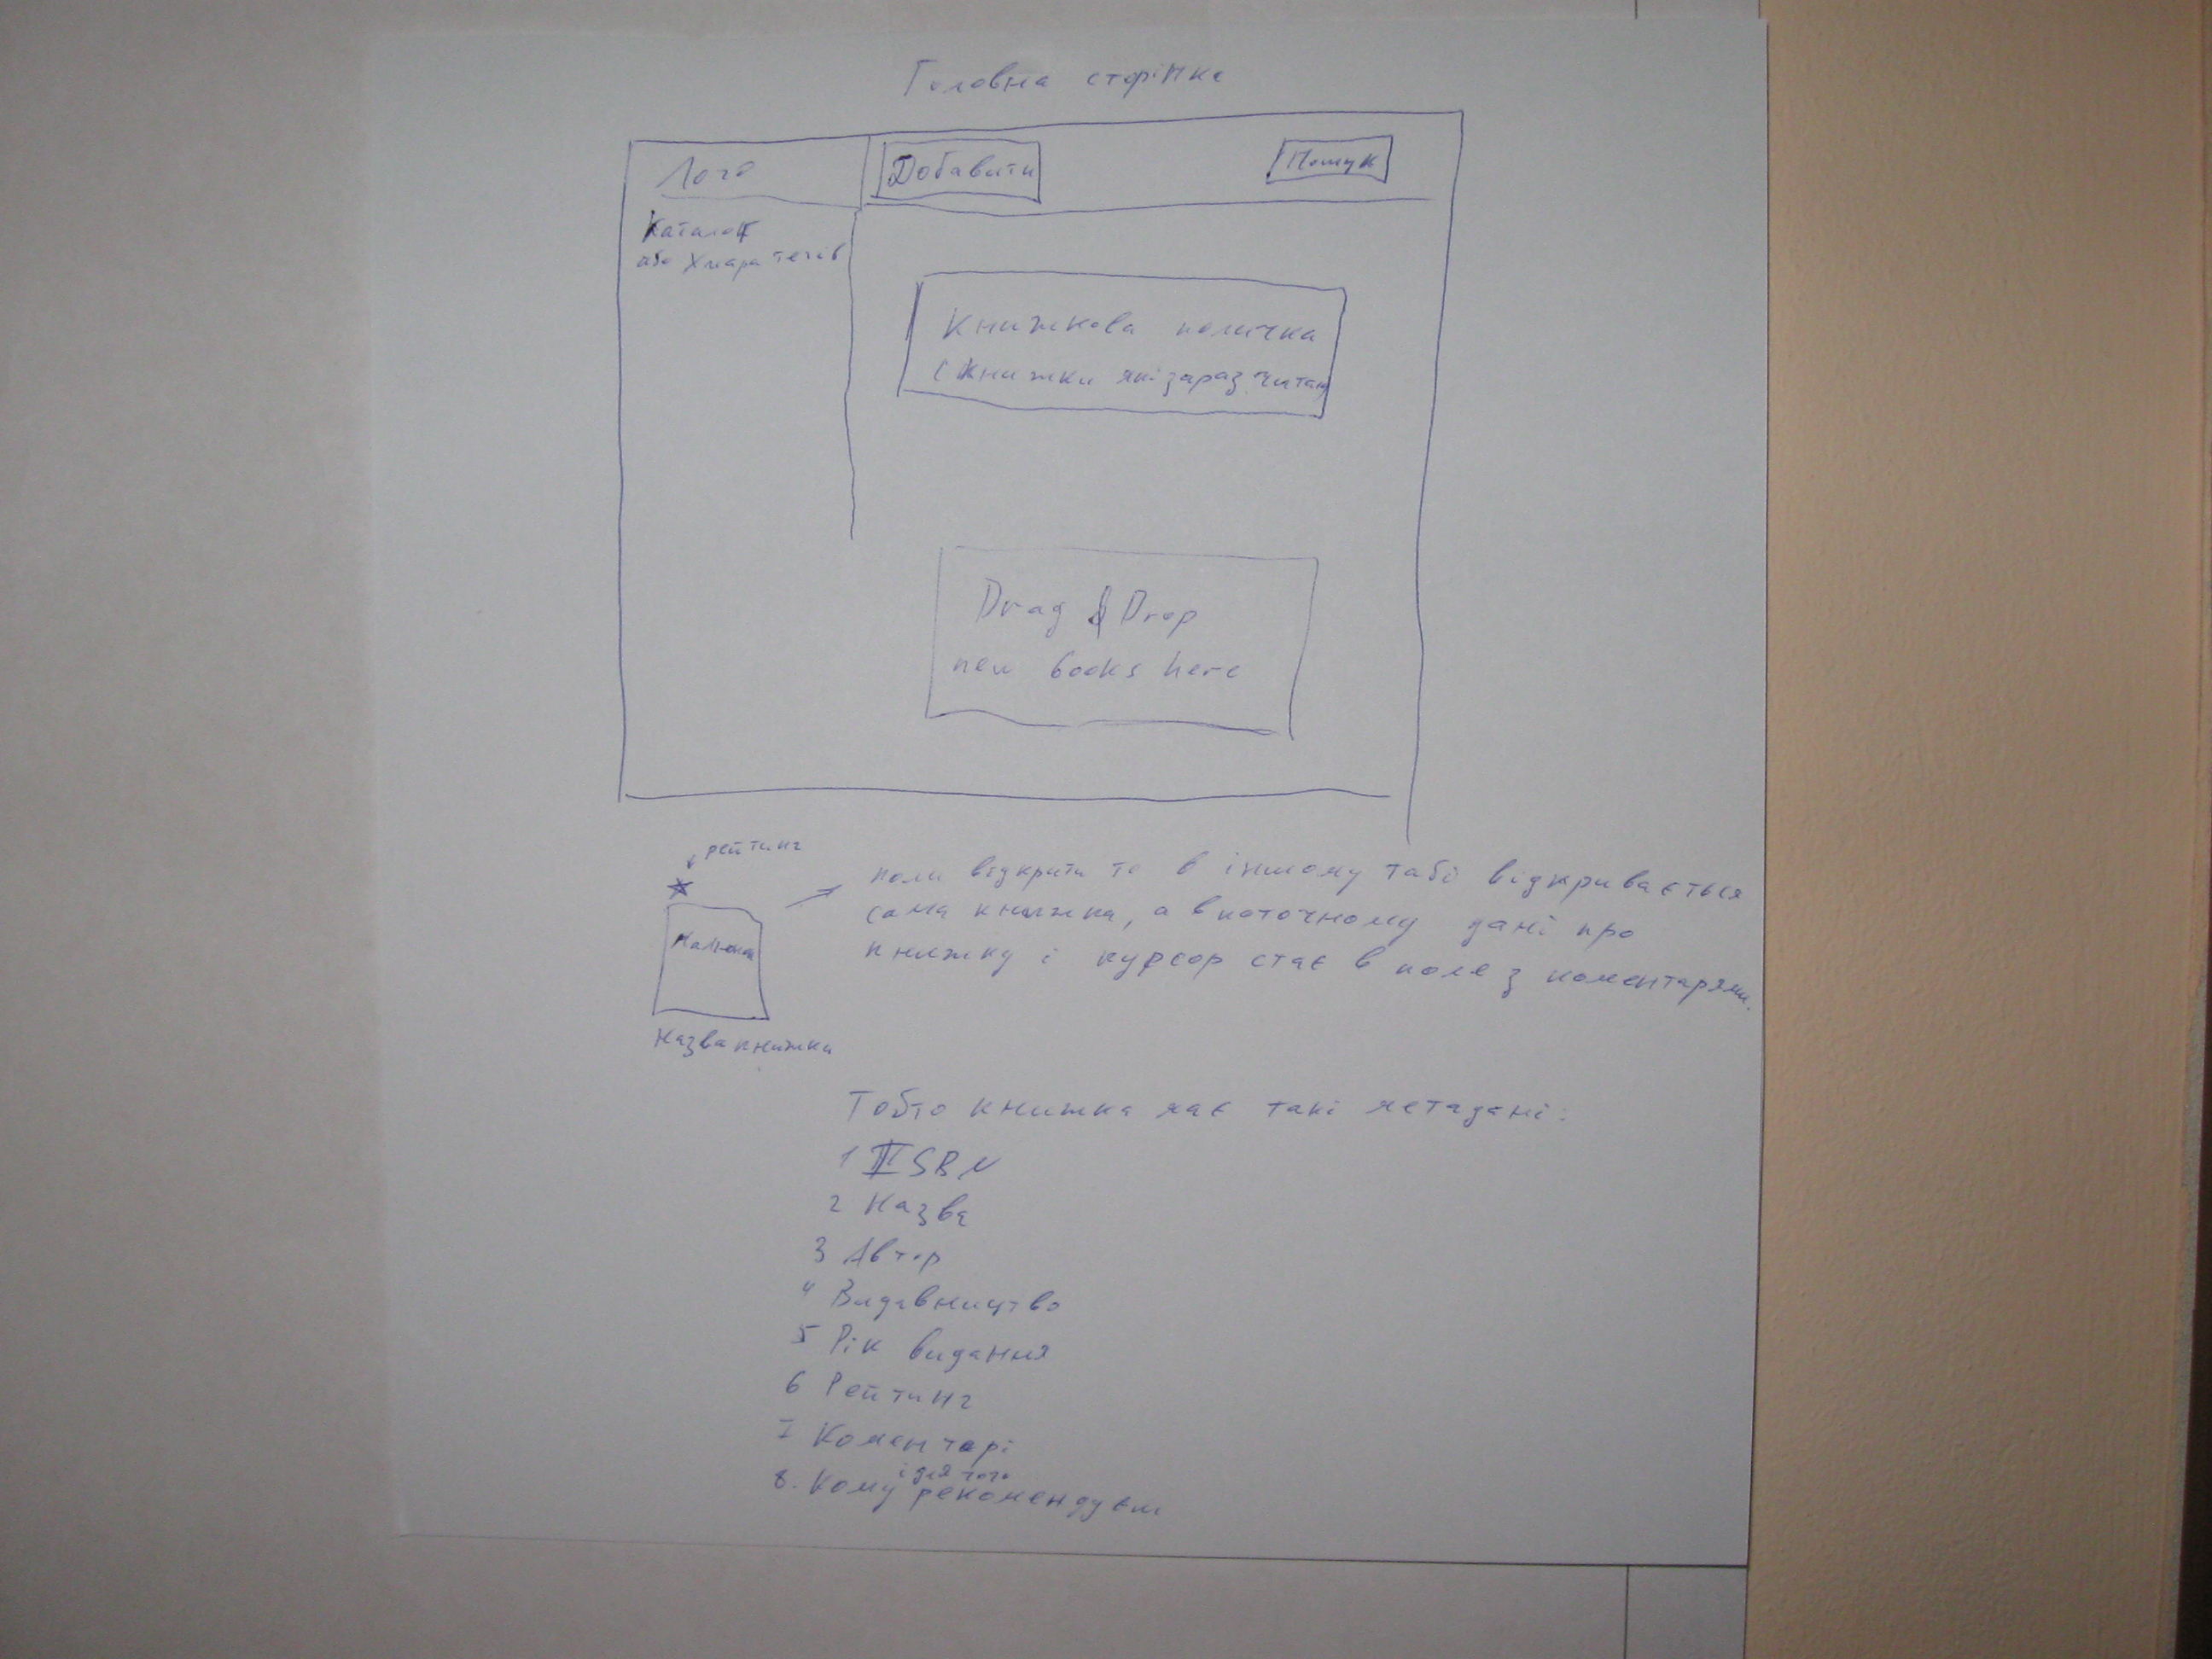 Головна сторінка
Лого
Добавити
Пошук
Каталог
або Хмара тегів
Книжкова поличка
(Книжки які зараз читаю)
Drag & Drop
new books here
рейтинг
коли відкрити то в іншому табі відкривається
сама книжка, а в поточному дані про
книжку і курсор стає в поле з коментарями.
Назва книжки
Тобто книжка має такі метадані:
1 ISBN
2 Назва
3 Автор
4 Видавництво
5 Рік видання
6 Рейтинг
7 Коментарі
і для чого
8. Кому рекомендуєш